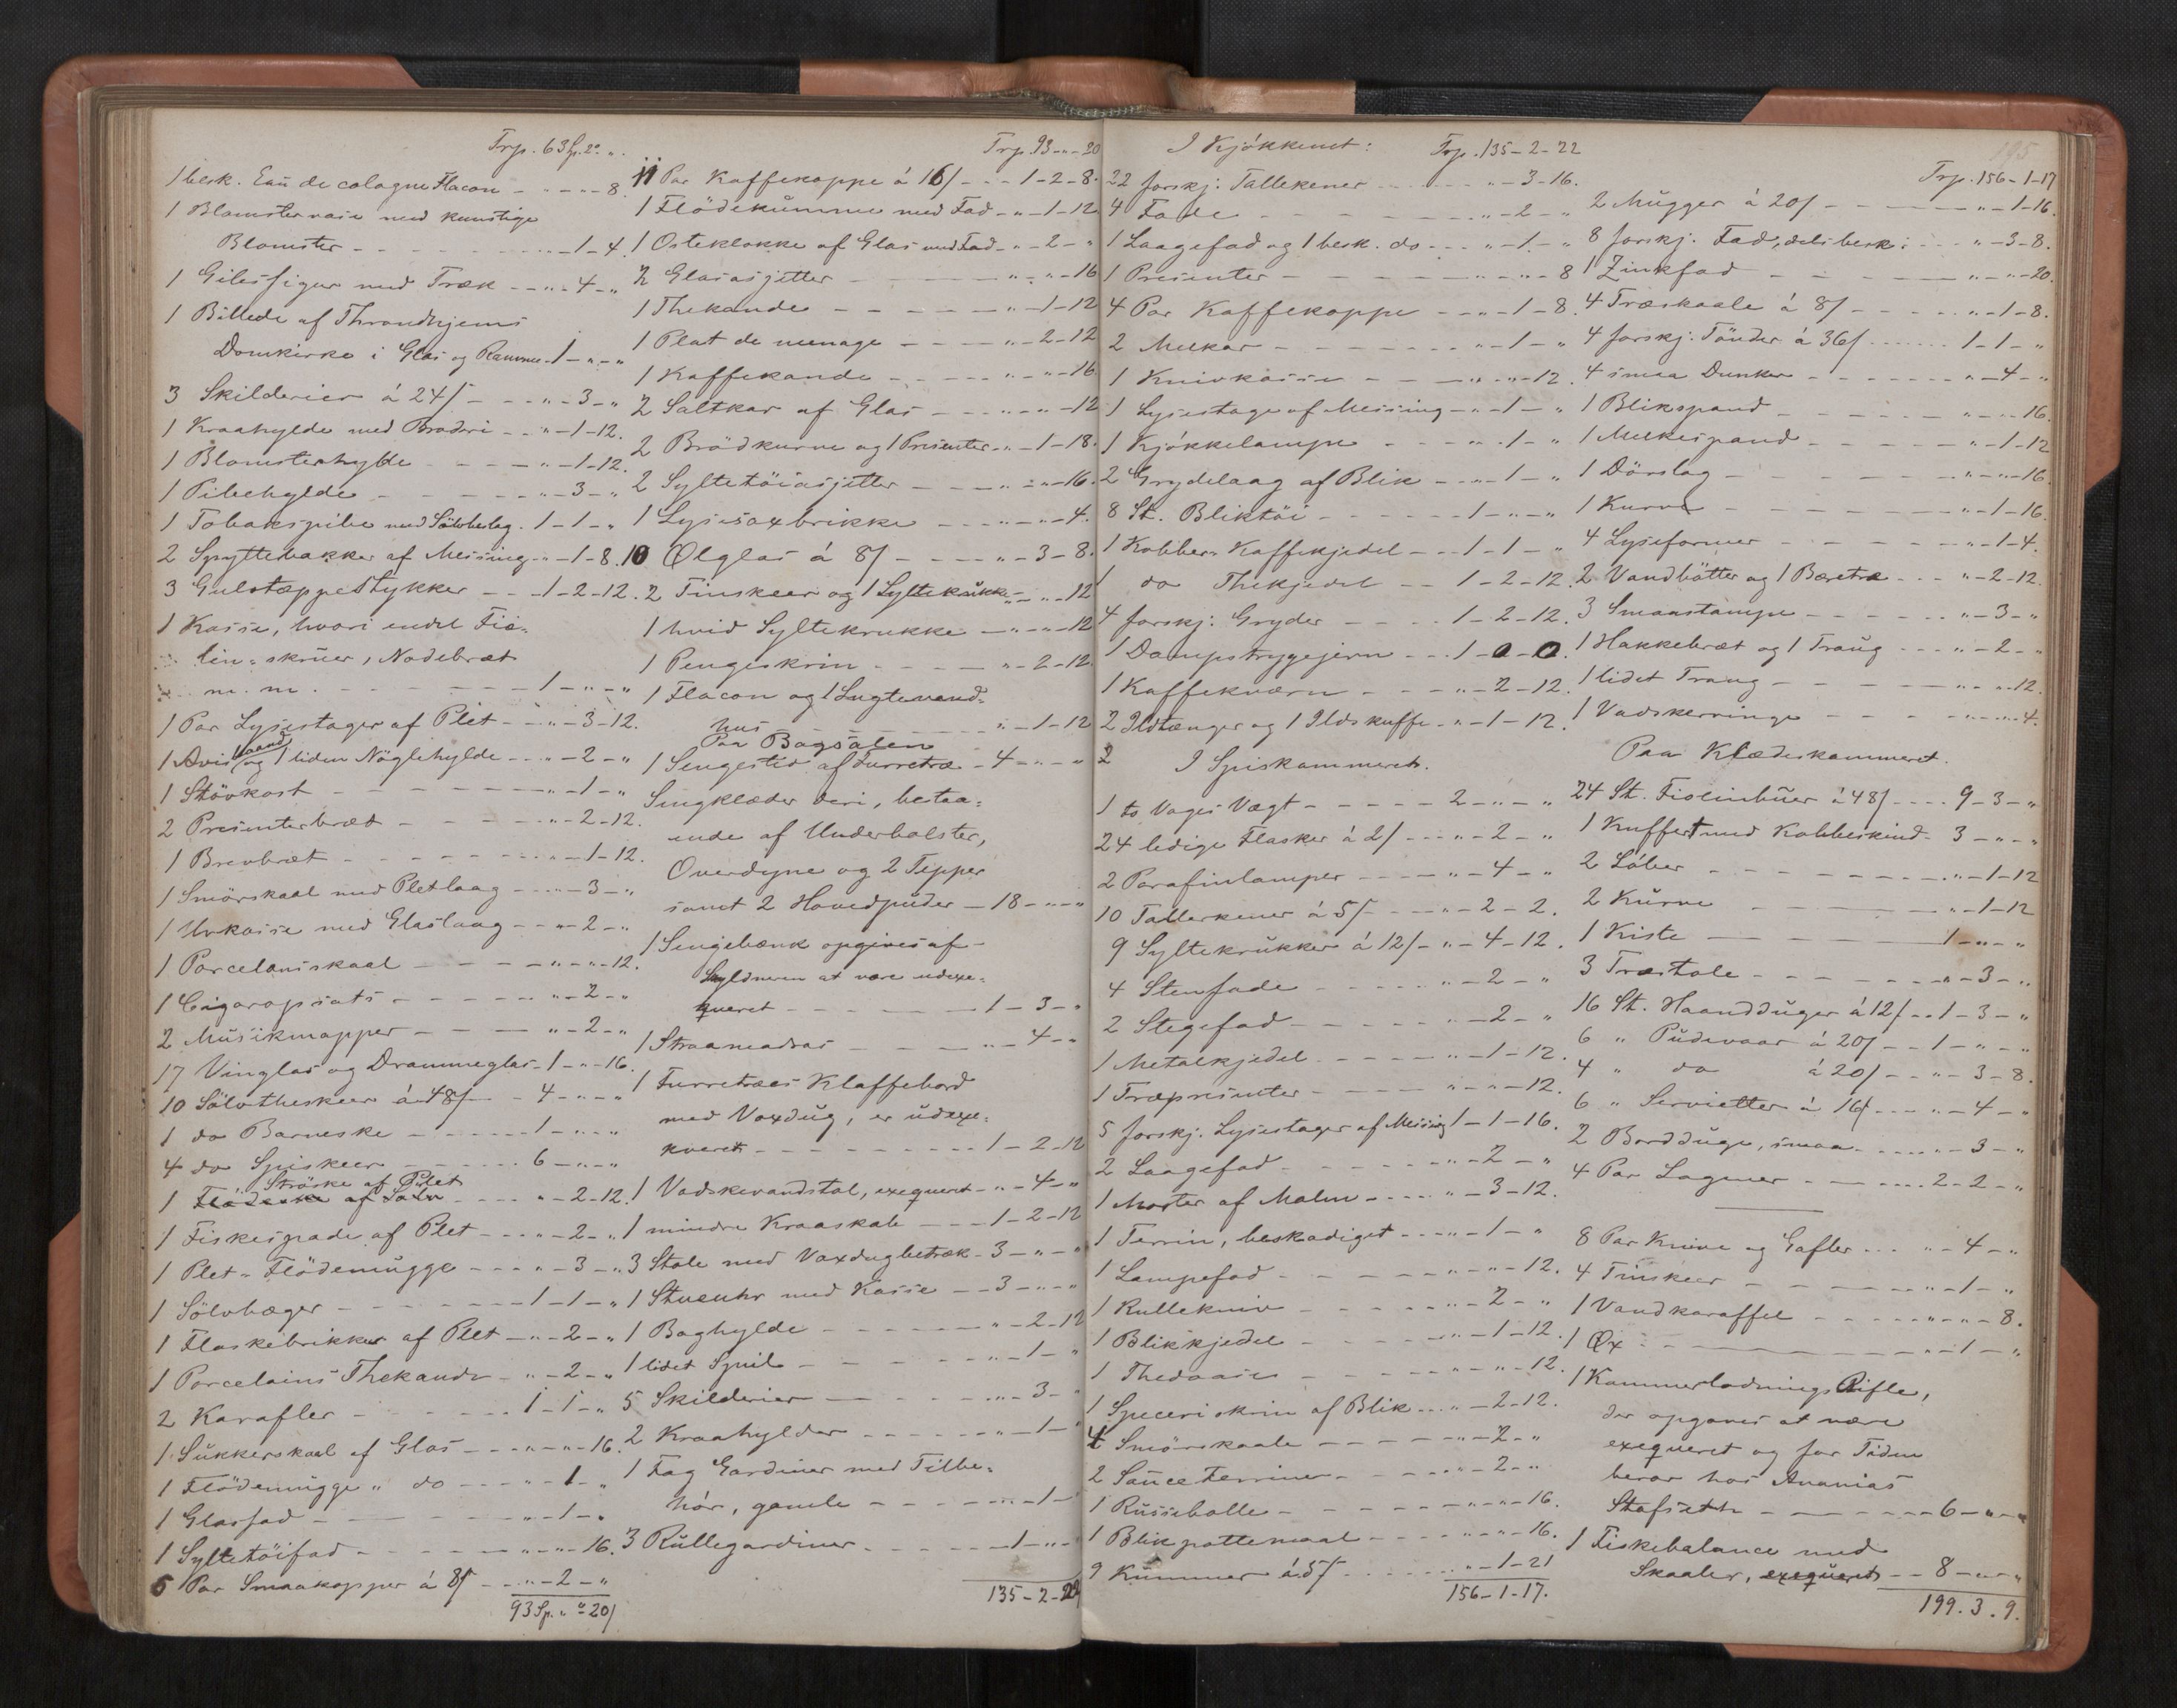 Trp. 63 Sp. 2 " "
1 besk. Eau de cologne Flacon - " - " - 8.
1 Blomstervase med kunstige
Blomster - - - " - 1 - 4.
1 Gibsfigur med Træk - - " - 4 - "
1 Billede af Throndhjems
Domkirke i Glas og Ramme - 1 - " - "
3 Skilderier á 24/ - - " - 3 - "
1 Kraahylde med Broderi - - " - 1 - 12.
1 Blomsterhylde - - - " - 1 - 12.
1 Pibehylde - - - " - 3 - "
1 Tobakspibe med Sølvbeslag. 1 - 1 - "
2 Spyttebakker af Messing - " - 1 - 8.
3 Gulvtæppestykker - - 1 - 2 - 12.
1 Kasse, hvori endel Fio-
lin-skruer, Nodebræt
m. m. - - - 1 - " - "
1 Par Lysestager af Plet - - " - 3 - 12.
1 Avishaand og 1 liden Nøglehylde - - " - 2 - "
1 Støvkost - - - " - 1 - "
2 Presenterbræt - - - " - 2 - 12.
1 Brevbræt - - - " - 1 - 12.
1 Smørskaal med Pletlaag - - " - 3 - "
1 Urkasse med Glaslaag - - " - 2 - "
1 Porcelainskaal - - - " - " - 12.
1 Cigaropsats - - - " - 2 - "
2 Musikmapper - - - " - 2 - "
17 Vinglas og Drammeglas - 1 - " - 16.
10 Sølvtheskeer á 48/ - - 4 - " - "
1 do Barneske - - - 1 - " - "
4 do Spiskeer - - - 6 - " - "
Strøske af Plet
1 Flødeske af Sølv - - - " - 2 - 12.
1 Fiskespade af Plet - - " - 2 - "
1 Plet-Flødemugge - - " - 3 - "
1 Sølvbæger - - - 1 - 1 - "
1 Flaskebrikker af Plet - " - 2 - "
1 Porcelains Thekande - " - 2 - "
2 Karafler - - - 1 - 1 - "
1 Sukkerskaal af Glas - - " - " - 16.
1 Flødemugge " do - - " - 1 - "
1 Glasfad - - - " - 1 - "
1 Syltetøifad - - - " - " - 16.
6 Par Smaakopper á 8/ - - " - 2 - "
93 Sp. " " 20/
Trp. 93 - " - 20
11 Par Kaffekoppe á 16/ - - 1 - 2 - 8.
1 Flødekumme med Fad - " - 1 - 12.
1 Osteklokke af Glas med Fad - " - 2 - "
2 Glasasjetter - - - " - " - 16
1 Thekande - - - " - 1 - 12
1 Plat de menage - - - " - 2 - 12
1 Kaffekande - - - " - " - 16
2 Saltkar af Glas - - - " - " - 12
2 Brødkurve og 1 Presenter - " - 1 - 18.
2 Syltetøiasjetter - - - " - " - 16.
1 Lysesaxbrikke - - - " - " - 4.
10 Ølglas á 8/ - - - " - 3 - 8.
2 Tinskeer og 1 Syltekrukke - " - " - 12
1 hvid Syltekrukke - " - " - 12
1 Pengeskrin - - - " - 2 - 12.
1 Flacon og 1 Lugtevand-
hus - - - " - 1 - 12
Paa Bagsalen
1 Sengested af Furretræ - 4 - " - "
Sengklæder deri, bestaa-
ende af Underbolster,
Overdyne og 2 Tepper
samt 2 Hovedpuder - 18 - " - "
1 Sengebænk opgives af
Skyldneren at være udexe-
queret - - - 1 - 3 - "
1 Straamadras - - - " - 4 - "
1 Furretræes Klaffebord
med Voxdug, er udexe-
kveret - - - 1 - 2 - 12
1 Vadskevandstol, exequeret - " - 4 - "
1 mindre Kraaskab - - - 1 - 2 - 12
3 Stole med Voxdugbetræk - 3 - " - "
1 Stueuhr med Kasse - - 3 - " - "
1 Boghylde - - - " - 2 - 12
1 lidet Speil - - - " - 1 - "
5 Skilderier - - - " - 3 - "
2 Kraahylder - - - " - 1 - "
1 Fag Gardiner med Tilbe-
hør, gamle - - - " - 1 - "
3 Rullegardiner - - - 1 - " - "
135 - 2 - 22
I Kjøkkenet: Trp. 135 - 2 - 22
22 forskj. Tallekener - - - " - 3 - 16.
4 Fade - - - " - 2 - "
1 Laagefad og 1 besk. do - - - " - 1 - "
1 Presenter - - - " - " - 8
4 Par Kaffekoppe - - " - 1 - 8.
2 Melkar - - - " - 1 - "
1 Knivkasse - - - " - " - 12.
1 Lysestage af Messing - " - 1 - "
1 Kjøkkelampe - - - " - 1 - "
2 Grydelaag af Blik - - " - 1 - "
8 St. Bliktøi - - - 1 - " - "
1 Kobber-Kaffekjedel - - 1 - 1 - "
1 do Thekjedel - - 1 - 2 - 12.
4 forskj. Gryder - - - 1 - 2 - 12.
1 Dampstrygejern - - - 1 - 0 - 0.
1 Kaffekværn - - - " - 2 - 12.
2 Ildtænger og 1 Ildskuffe - " - 1 - 12.
I Spiskammeret.
1 to Vogs Vægt - - - 2 - " - "
24 ledige Flasker á 2/ - - " - 2 - "
2 Parafinlamper - - - " - 4 - "
10 Tallerkener á 5/ - - - " - 2 - 2.
9 Syltekrukker á 12/ - " - 4 - 12.
4 Stenfade - - - " - 2 - "
2 Stegefad - - - " - 2 - "
1 Metalkjedel - - - " - 1 - 12.
1 Træpresenter - - - " - " - 12.
5 forskj. Lysestager af Messing 1 - 1 - 16.
2 Laagefad - - - " - 2 - "
1 Morter af Malm - - - " - 3 - 12.
1 Terrin, beskadiget - - " - 1 - "
1 Lampefad - - - " - " - 12.
1 Rullekniv - - - " - 2 - "
1 Blikkjedel - - - " - 1 - 12.
1 Thedaase - - - " - " - 12.
1 Speceriskrin af Blik - - " - 2 - 12.
4 Smørskaale - - - " - 2 - "
2 Sauce Terriner - - - " - 2 - "
1 Russebolle - - - " - " - 16.
1 Blikpottemaal - - - " - " - 16.
9 Kummer á 5/ - - - " - 1 - 21
156 - 1 - 17.
195
Trp. 156 - 1 - 17
2 Mugger á 20/ - - - " - 1 - 16.
8 forskj. Fad, dels besk: - - " - 3 - 8.
1 Zinkfad - - - " - " - 20.
4 Træskaale á 8/ - - - " - 1 - 8.
4 forskj. Tønder á 36/ - - - 1 - 1 - "
4 smaa Dunker - - - " - 4 - "
1 Blikspand - - - " - " - 16.
1 Melkespand - - - " - 1 - 12
1 Dørslag - - - " - " - 16.
1 Kurv - - - " - 1 - 16.
4 Lyseformer - - - " - 1 - 4.
2 Vandbøtter og 1 Bæretræ - - - " - 2 - 12.
3 Smaastampe - - - " - 3 - "
1 Hakkebræt og 1 Traug - - - " - 2 - "
1 lidet Traug - - - " - " - 12.
1 Vadskerringe - - - " - " - 4.
Paa Klædeskammeret.
24 St. Fiolinbuer á 48/ - - - 9 - 3 - "
1 Kuffert med Kobbeskind - 3 - " - "
2 Løber - - - " - 1 - 12
2 Kurve - - - " - 1 - 12
1 Kiste - - - 1 - " - "
3 Træstole - - - " - 3 - "
16 St. Haandduger á 12/ - - 1 - 3 - "
6 " Pudevaar á 20/ - - 1 - " - "
4 " do á 20/ - - " - 3 - 8.
6 " Servietter á 16/ - - - " - 4 - "
2 Bordduge, smaa - - - " - 3 - "
4 Par Lagener - - - 2 - 2 - "
8 Par Knive og Gafler - - - " - 4 - "
4 Tinskeer - - - " - 1 - "
1 Vandkaraffel - - - " - " - 8.
1 Øx - - - " - 1 - "
1 Kammerladnings Rifle,
der opgives at være
exequeret og for Tiden
beror hos Ananias
Stafseth - - - 6 - " - "
1 Fiskebalance med
Skaaler, exequeret - - 8 - " - "
199. 3. 9.